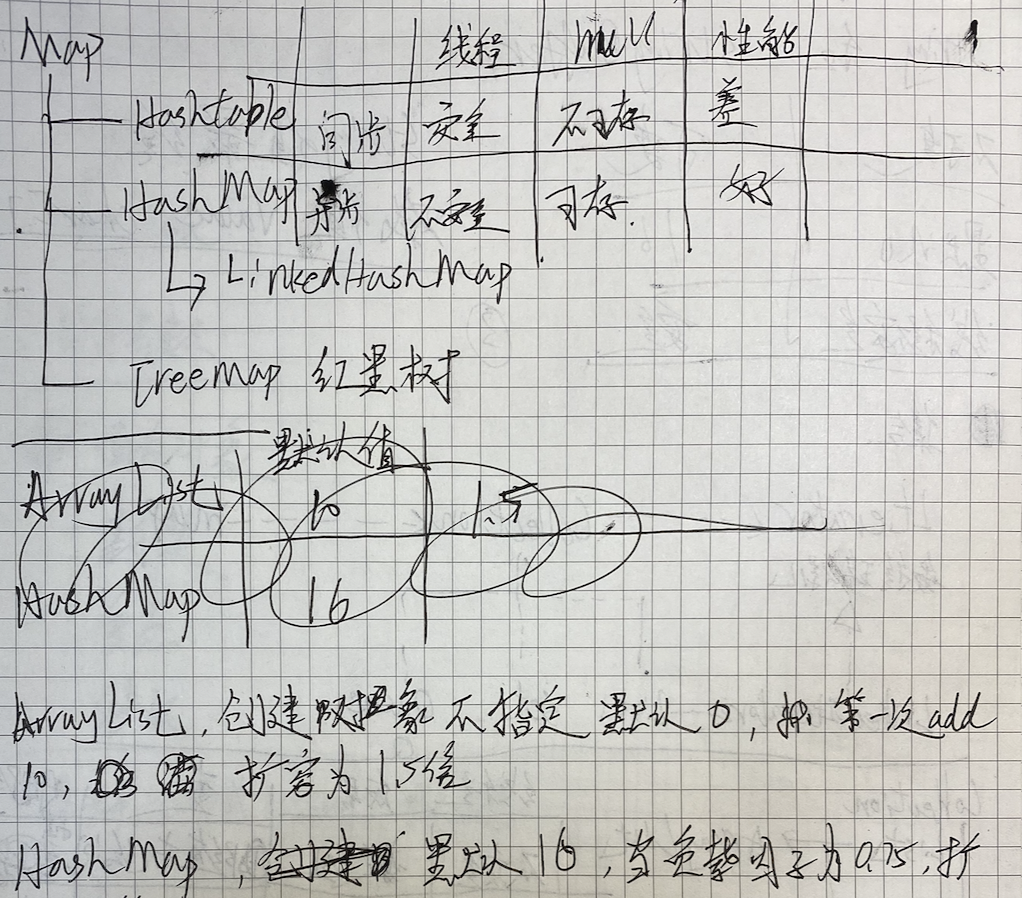 Map 线程 null 性能
Hashtable 同步 安全 不可存 差
HashMap 异步 不安全 可存. 好
LinkedHashMap
TreeMap 红黑树
默认值
ArrayList 10 1.5
HashMap 16
ArrayList, 创建 对象 不指定 默认 0, 第一次 add
10, 满 扩容为 1.5倍
HashMap, 默认 16, 当负载因子为 0.75, 扩